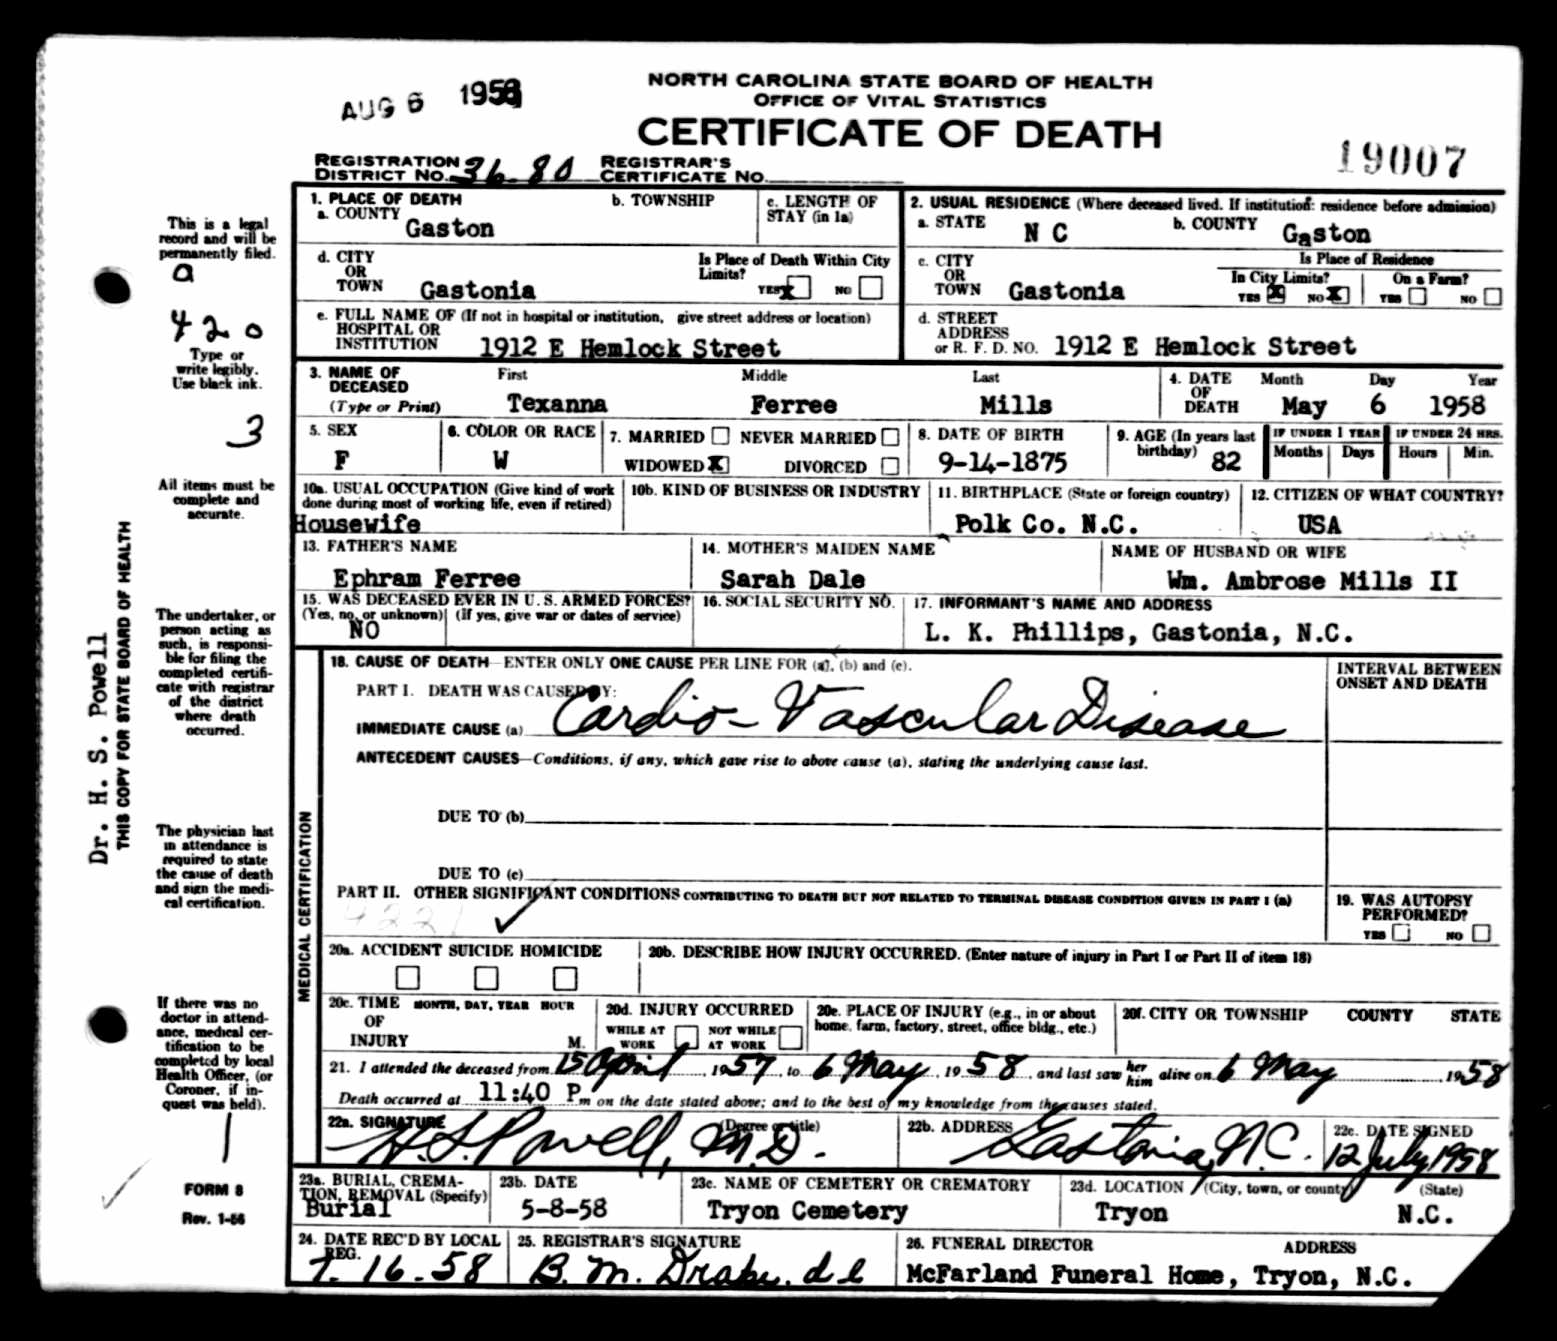 AUG 6 1958
NORTH CAROLINA STATE BOARD OF HEALTH
OFFICE OF VITAL STATISTICS
CERTIFICATE OF DEATH
19007
REGISTRATION DISTRICT NO. 36-80 REGISTRAR'S CERTIFICATE NO.
This is a legal
record and will be
permanently filed.
a
420
Type or
write legibly.
Use black ink.
3
All items must be
complete and
accurate.
The undertaker, or
person acting as
such, is responsi-
ble for filing the
completed certifi-
cate with registrar
of the district
where death
occurred.
The physician last
in attendance is
required to state
the cause of death
and sign the medi-
cal certification.
If there was no
doctor in attend-
ance, medical cer-
tification to be
completed by local
Health Officer, (or
Coroner, if in-
quest was held).
1
FORM 8
Rev. 1-56
Dr. H. S. Powell
THIS COPY FOR STATE BOARD OF HEALTH
1. PLACE OF DEATH
a. COUNTY Gaston
b. TOWNSHIP
c. LENGTH OF STAY (in 1a)
2. USUAL RESIDENCE (Where deceased lived. If institution: residence before admission)
a. STATE N C b. COUNTY Gaston
d. CITY OR TOWN Gastonia
Is Place of Death Within City Limits?
YES X NO
c. CITY OR TOWN Gastonia
Is Place of Residence
In City Limits? On a Farm?
YES X NO X YES NO
e. FULL NAME OF (If not in hospital or institution, give street address or location)
HOSPITAL OR
INSTITUTION 1912 E Hemlock Street
d. STREET
ADDRESS
or R. F. D. NO. 1912 E Hemlock Street
3. NAME OF DECEASED (Type or Print)
First Middle Last
Texanna Ferree Mills
4. DATE OF DEATH Month Day Year
May 6 1958
5. SEX F
6. COLOR OR RACE W
7. MARRIED NEVER MARRIED
WIDOWED X DIVORCED
8. DATE OF BIRTH 9-14-1875
9. AGE (In years last birthday) 82
IF UNDER 1 YEAR Months Days
IF UNDER 24 HRS. Hours Min.
10a. USUAL OCCUPATION (Give kind of work done during most of working life, even if retired)
Housewife
10b. KIND OF BUSINESS OR INDUSTRY
11. BIRTHPLACE (State or foreign country)
Polk Co. N.C.
12. CITIZEN OF WHAT COUNTRY?
USA
13. FATHER'S NAME
Ephram Ferree
14. MOTHER'S MAIDEN NAME
Sarah Dale
NAME OF HUSBAND OR WIFE
Wm. Ambrose Mills II
15. WAS DECEASED EVER IN U. S. ARMED FORCES?
(Yes, no, or unknown) (If yes, give war or dates of service)
NO
16. SOCIAL SECURITY NO.
17. INFORMANT'S NAME AND ADDRESS
L. K. Phillips, Gastonia, N.C.
MEDICAL CERTIFICATION
18. CAUSE OF DEATH—ENTER ONLY ONE CAUSE PER LINE FOR (a), (b) and (c).
INTERVAL BETWEEN
ONSET AND DEATH
PART I. DEATH WAS CAUSED BY:
IMMEDIATE CAUSE (a) Cardio-Vascular Disease
ANTECEDENT CAUSES—Conditions, if any, which gave rise to above cause (a), stating the underlying cause last.
DUE TO (b)
DUE TO (c)
PART II. OTHER SIGNIFICANT CONDITIONS CONTRIBUTING TO DEATH BUT NOT RELATED TO TERMINAL DISEASE CONDITION GIVEN IN PART I (a)
4221
19. WAS AUTOPSY PERFORMED?
YES NO
20a. ACCIDENT SUICIDE HOMICIDE
20b. DESCRIBE HOW INJURY OCCURRED. (Enter nature of injury in Part I or Part II of item 18)
20c. TIME OF INJURY MONTH, DAY, YEAR HOUR M.
20d. INJURY OCCURRED
WHILE AT WORK NOT WHILE AT WORK
20e. PLACE OF INJURY (e.g., in or about home, farm, factory, street, office bldg., etc.)
20f. CITY OR TOWNSHIP COUNTY STATE
21. I attended the deceased from 15 April, 1957, to 6 May, 1958, and last saw her him alive on 6 May 1958
Death occurred at 11:40 P.m on the date stated above; and to the best of my knowledge from the causes stated.
22a. SIGNATURE (Degree or title)
H. S. Powell, M.D.
22b. ADDRESS
Gastonia, N.C.
22c. DATE SIGNED
12 July 1958
23a. BURIAL, CREMA-
TION, REMOVAL (Specify)
Burial
23b. DATE
5-8-58
23c. NAME OF CEMETERY OR CREMATORY
Tryon Cemetery
23d. LOCATION (City, town, or county) (State)
Tryon N.C.
24. DATE REC'D BY LOCAL REG.
7.16.58
25. REGISTRAR'S SIGNATURE
B. M. Drake. d l
26. FUNERAL DIRECTOR ADDRESS
McFarland Funeral Home, Tryon, N.C.